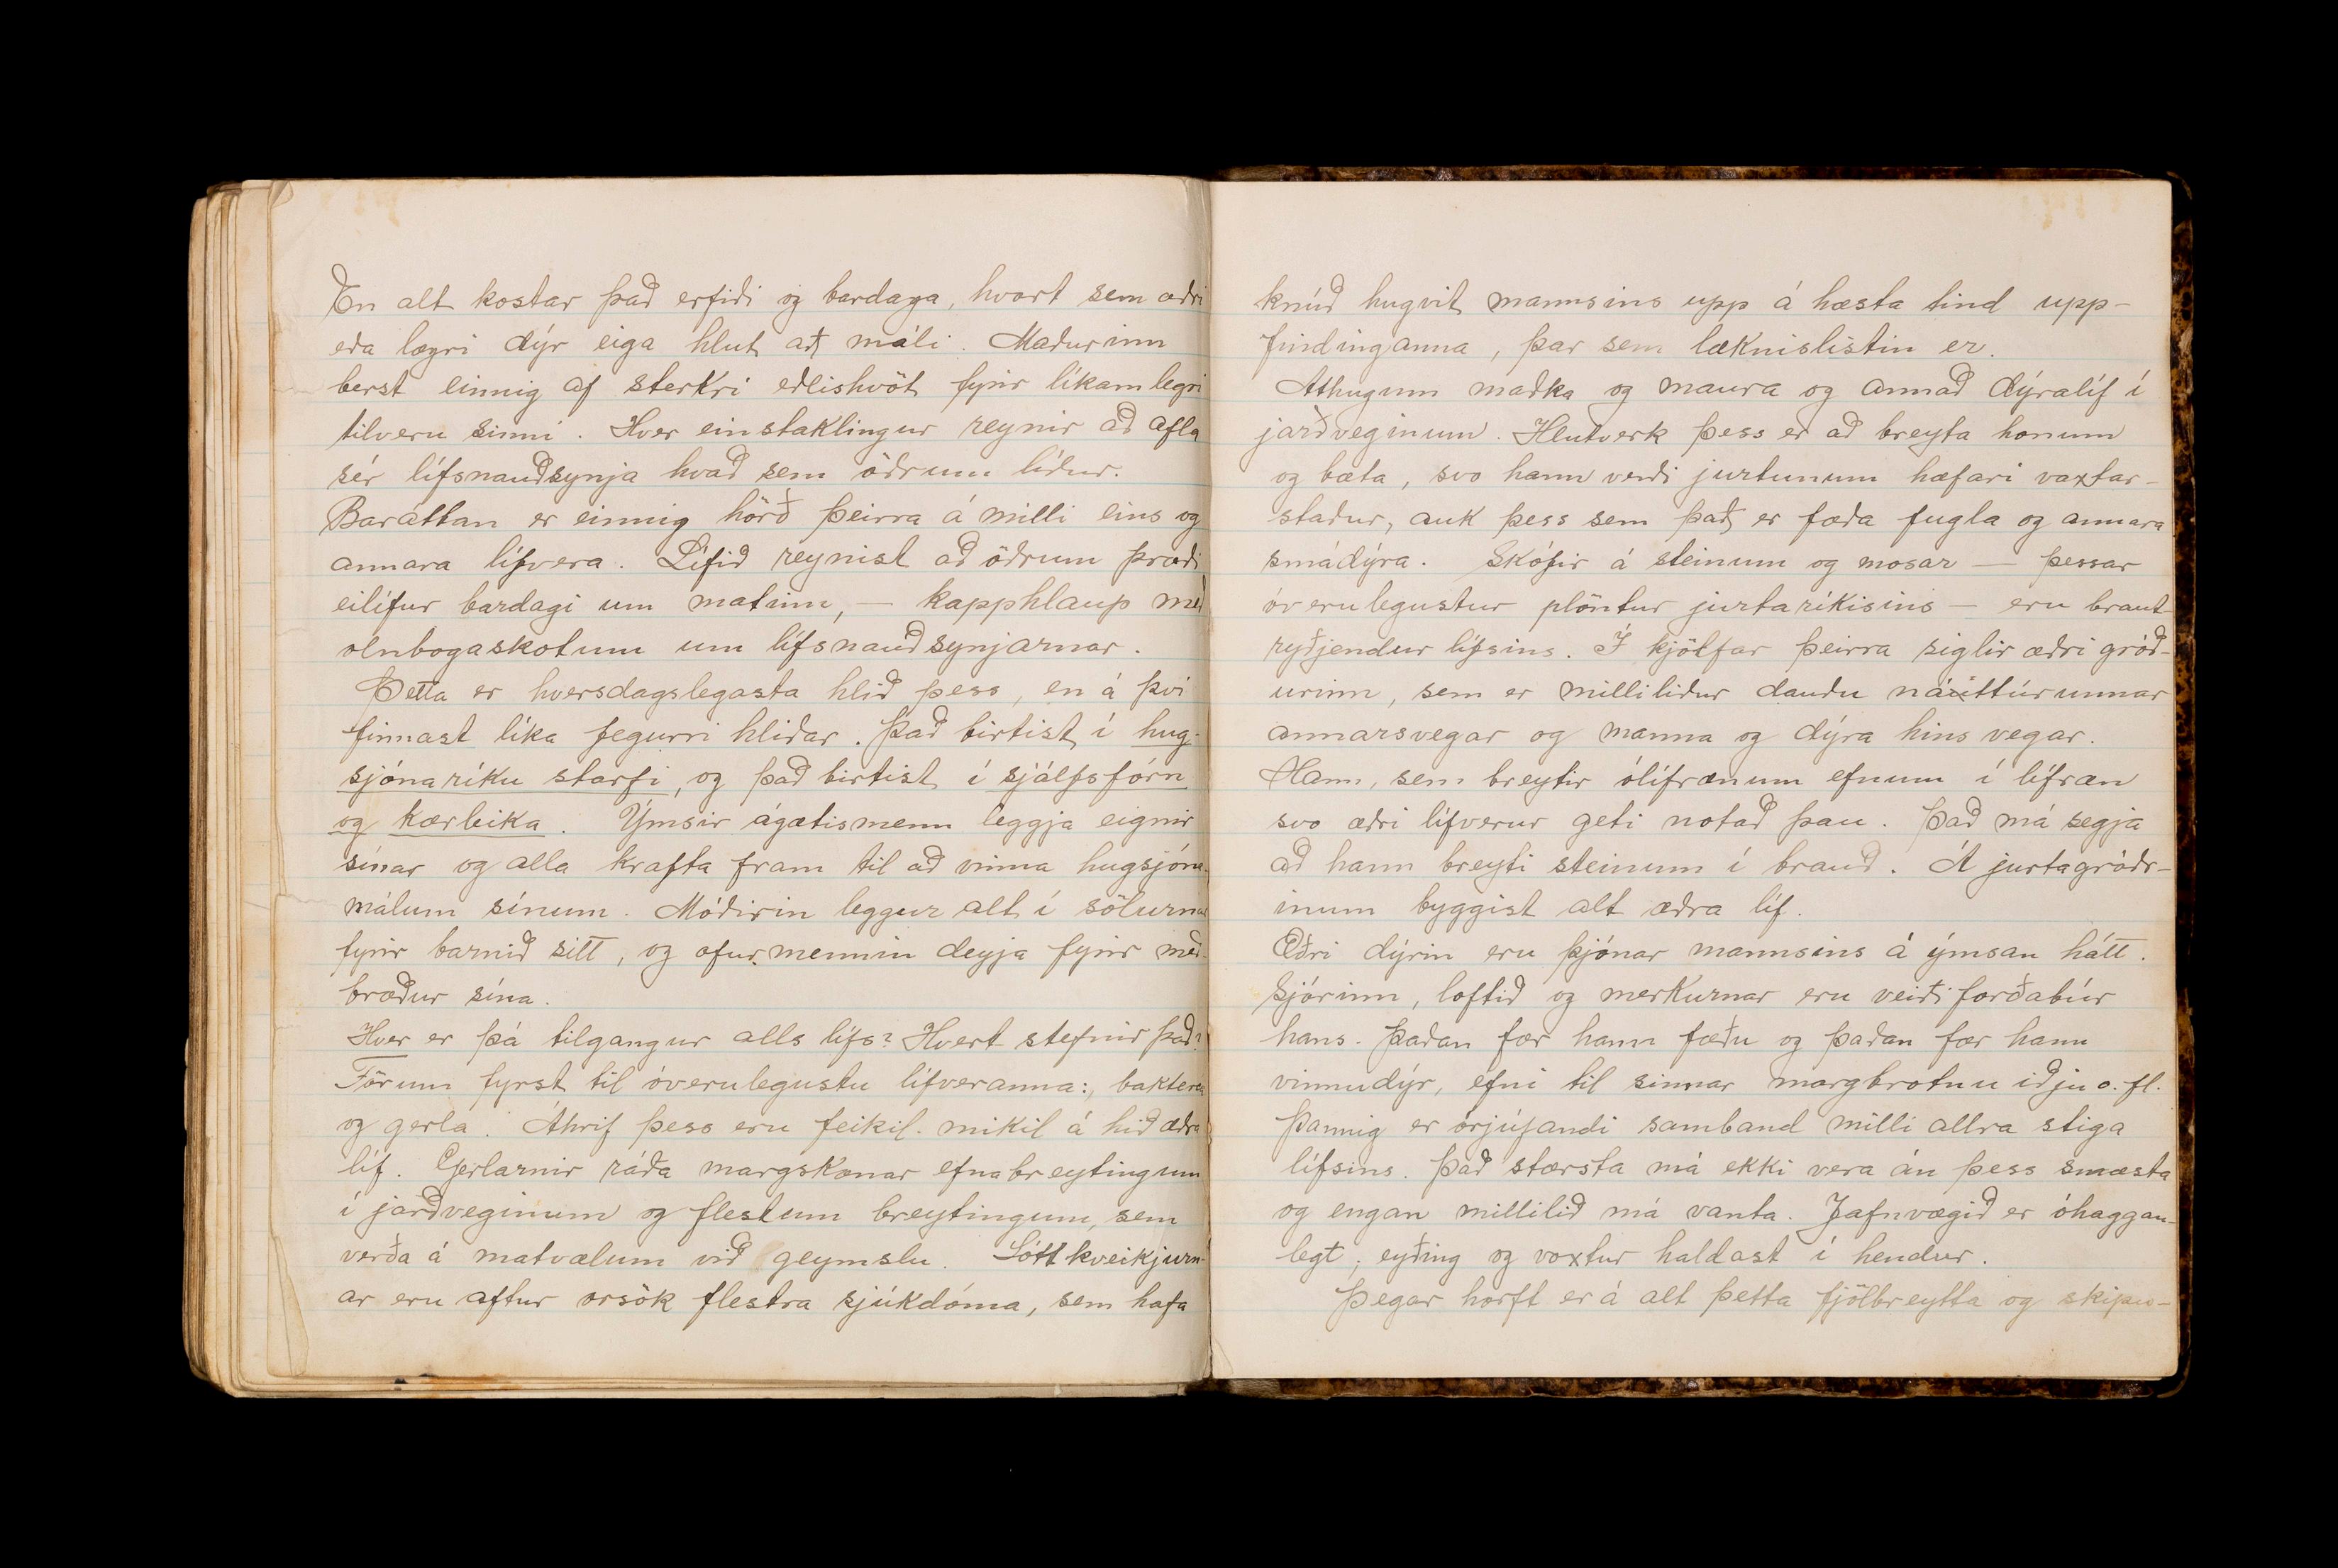 En alt kostar það erfiði og bardaga, hvort sem æðri
eða lægri dýr eiga hlut að máli. Maðurinn
berst einnig af sterkri eðlishvöt fyrir líkamlegri
tilveru sinni. Hver einstaklingur reynir að afla
sér lífsnauðsynja hvað sem öðrum líður.
Baráttan er einnig hörð þeirra á milli eins og
annara lífvera. Lífið reynist að öðrum þræði
eilífur bardagi um matinn, — kapphlaup með
olnbogaskotum um lífsnauðsynjarnar.
Þetta er hversdagslegasta hlið þess, en á því
finnast líka fegurri hliðar. Það birtist í hug-
sjónaríku starfi, og það birtist í sjálfsfórn
og kærleika. Ýmsir ágætismenn leggja eignir
sínar og alla krafta fram til að vinna hugsjóna-
málum sínum. Móðirin leggur alt í sölurnar
fyrir barnið sitt, og ofurmennin deyja fyrir með-
bræður sína.
Hver er þá tilgangur alls lífs? Hvert stefnir það?
Förum fyrst til óverulegustu lífveranna:, baktería
og gerla. Áhrif þess eru feikil. mikil á hið æðra
líf. Gerlarnir ráða margskonar efnabreytingum
í jarðveginum og flestum breytingum, sem
verða á matvælum við geymslu. Sóttkveikjurn-
ar eru aftur orsök flestra sjúkdóma, sem hafa
knúð hugvit mannsins upp á hæsta tind upp-
findinganna, þar sem læknislistin er.
Athugum maðka og maura og annað dýralíf í
jarðveginum. Hlutverk þess er að breyta honum
og bæta, svo hann verði jurtunum hæfari vaxtar-
staður, auk þess sem það er fæða fugla og annara
smádýra. Skófir á steinum og mosar — þessar
óverulegustur plöntur jurtaríkisins — eru braut-
ryðjendur lífsins. Í kjölfar þeirra siglir æðri gróð-
urinn, sem er milliliður dauðu náttúrunnar
annarsvegar og manna og dýra hins vegar.
Hann, sem breytir ólífrænum efnum í lífræn
svo æðri lífverur geti notað þau. Það má segja
að hann breyti steinum í brauð. Á jurtagróðr-
inum byggist alt æðra líf.
Æðri dýrin eru þjónar mannsins á ýmsan hátt.
Sjórinn, loftið og merkurnar eru veiði forðabúr
hans. Þaðan fær hann fæðu og þaðan fær hann
vinnudýr, efni til sinnar margbrotnu iðju o. fl.
Þannig er órjúfandi samband milli allra stiga
lífsins. Það stærsta má ekki vera án þess smæsta
og engan millilið má vanta. Jafnvægið er óhaggan-
legt, eyðing og voxtur haldast í hendur.
Þegar horft er á alt þetta fjölbreytta og skipu-